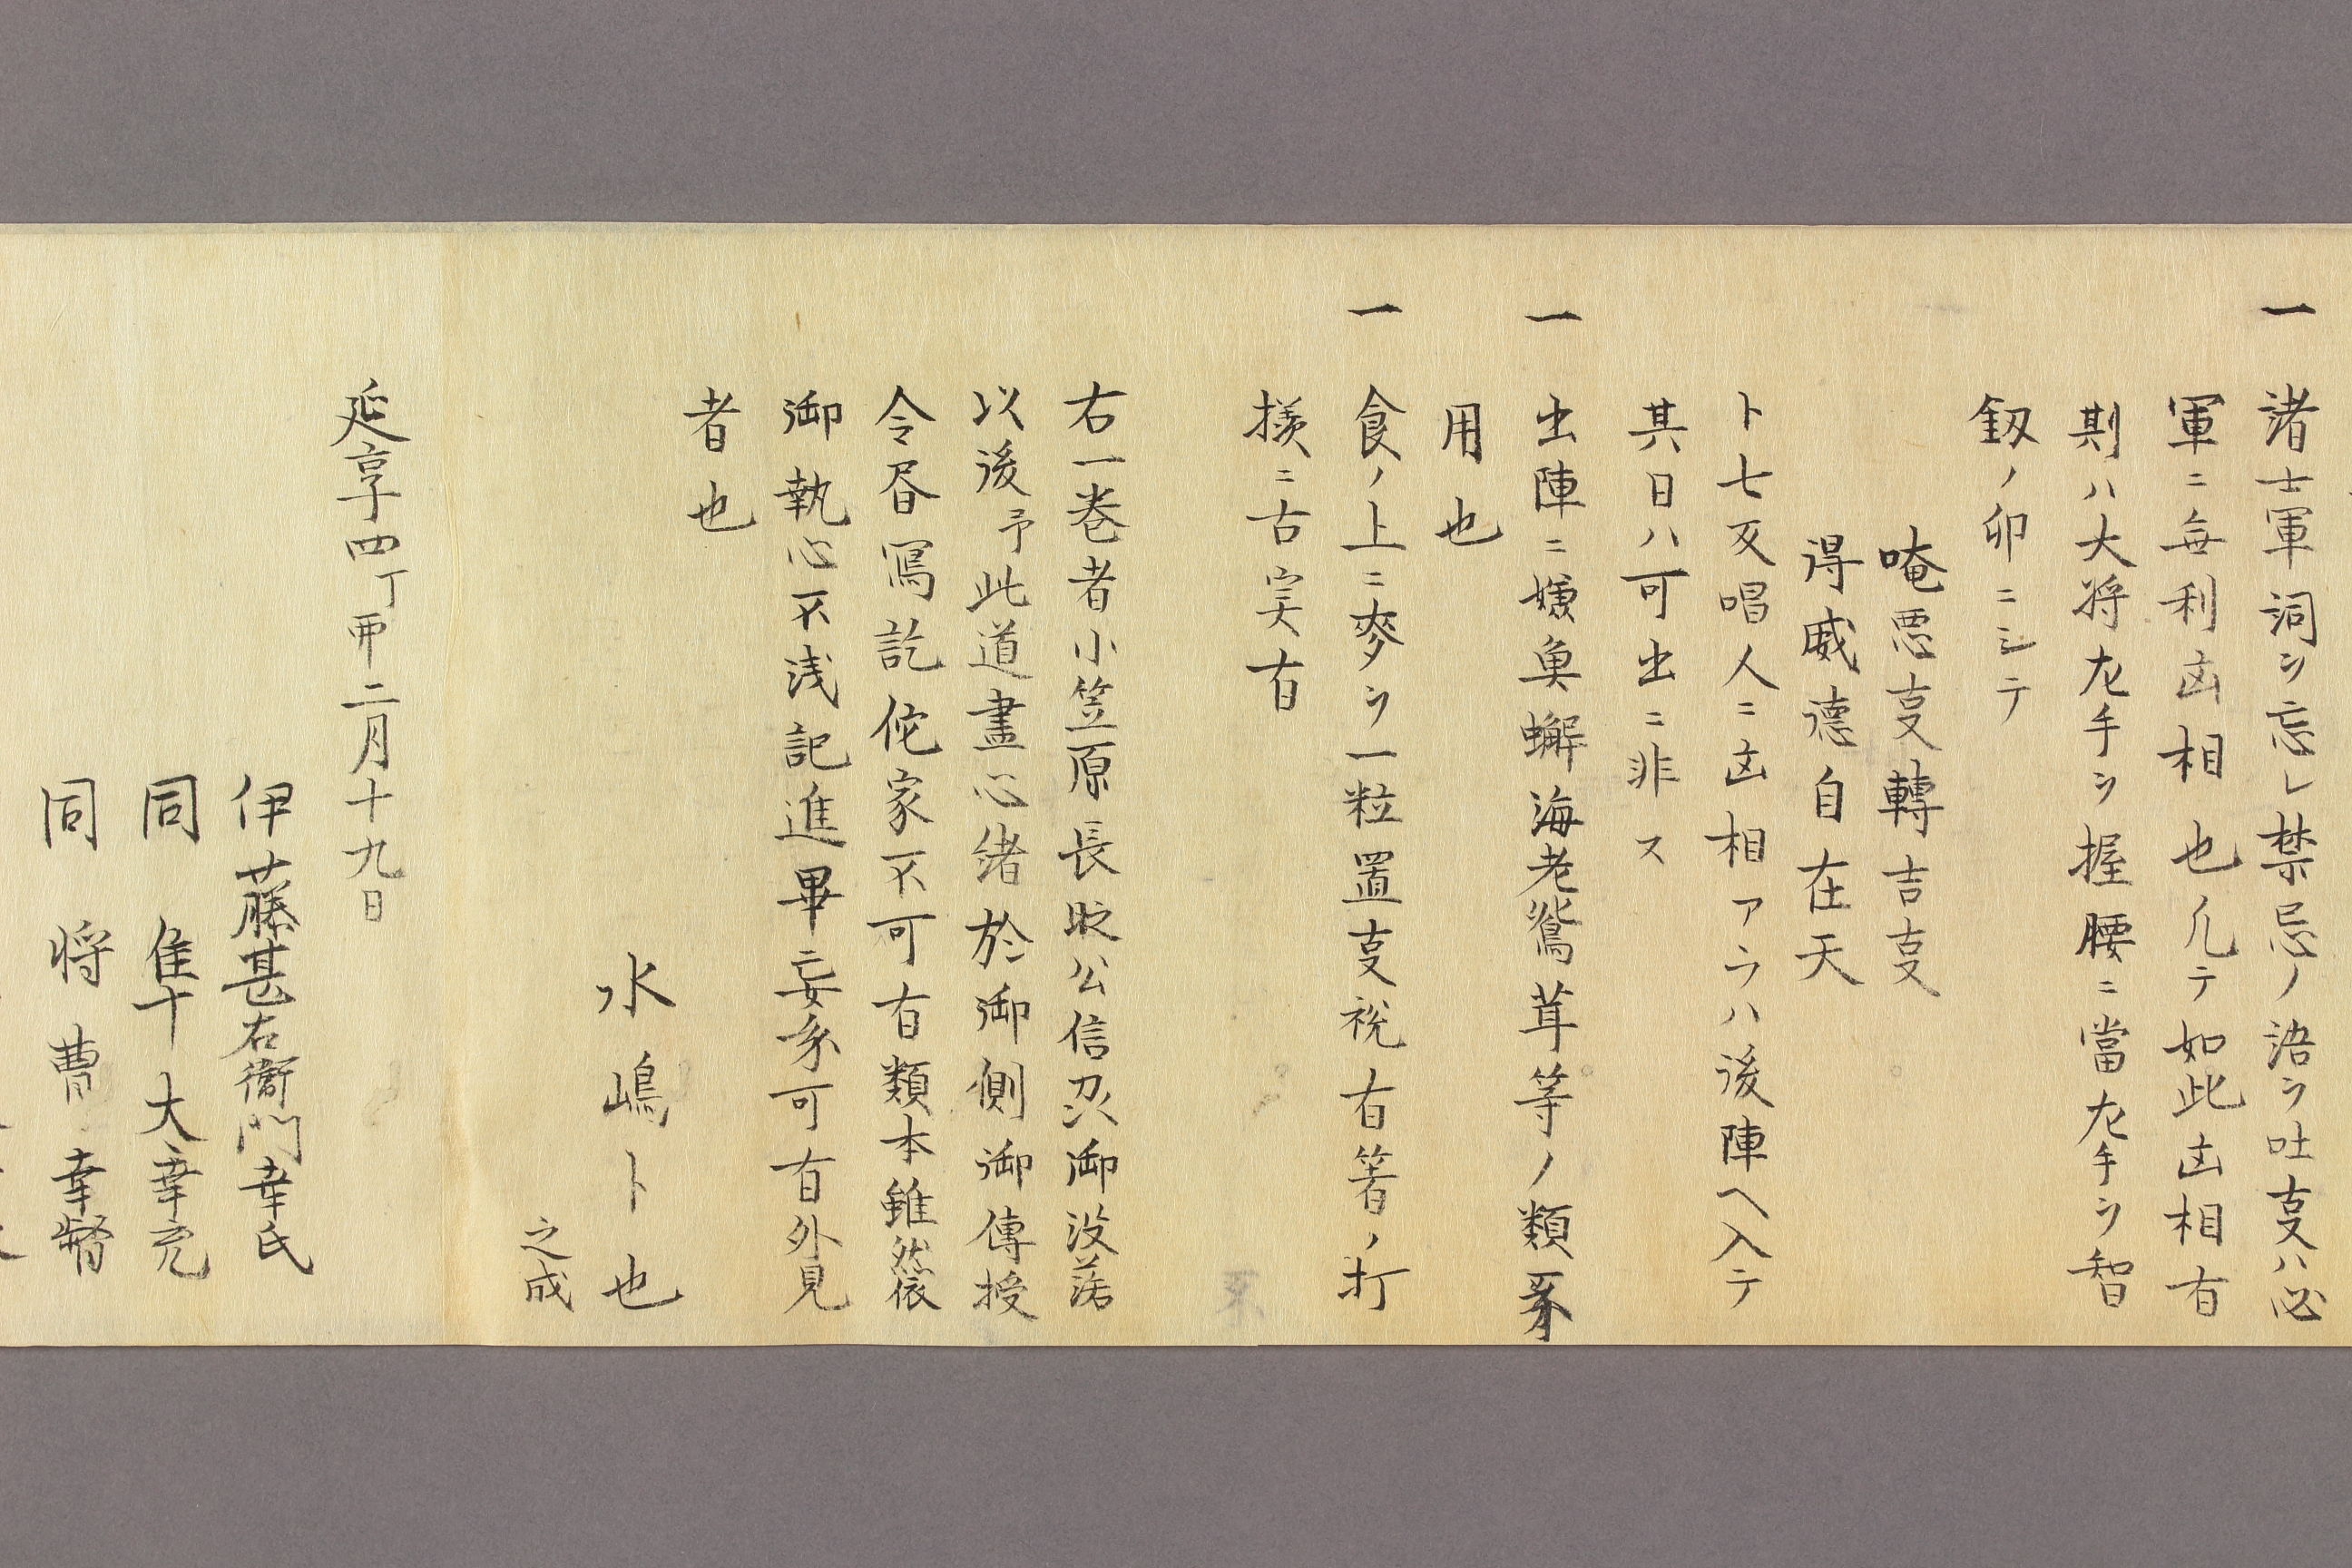 一 諸士軍詞ヲ忘レ禁忌ノ語ヲ吐㕝ハ必
軍ニ無利凶相也凡テ如此凶相有
則ハ大将左手ヲ握腰ニ當左手ヲ智
釼ノ印ニシテ
唵悪㕝轉吉㕝
得威德自在天
ト七反唱人ニ凶相アラハ後陣ヘ入テ
其日ハ可出ニ非ス
一 出陣ニ嫌魚蠏海老鴛茸等ノ類不
用也
一 食ノ上ニ麥ヲ一粒置㕝祝有箸ノ打
様ニ古実有
右一巻者小笠原長時公信州御没落
以後予此道盡心緒於御側御傳授
令昼寫訖佗家不可有類本雖然依
御執心不浅記進畢妄不可有外見
者也
水嶋卜也
之成
延享四丁卯二月十九日
伊藤甚右衛門幸氏
同 隼十大幸充
同 将曹 幸督